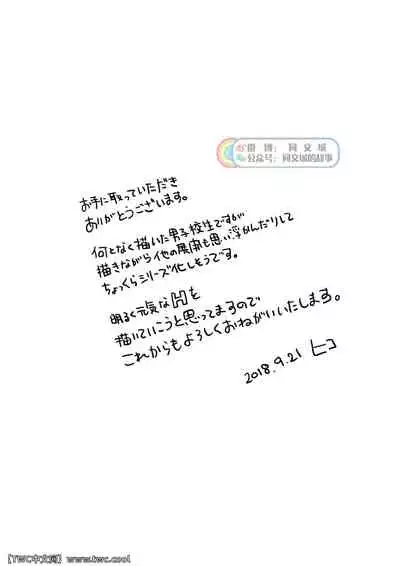 微博：同文城
公众号：同文城的故事
お手に取っていただき
ありがとうございます。
何となく描いた男子校生ですが
描きながら他の展開も思い浮かんだりして
ちょっくらシリーズ化しそうです。
明るく元気なHを
描いていこうと思ってますので
これからもよろしくおねがいいたします。
2018.9.21 ヒコ
【TWC中文网】www.twc.cool